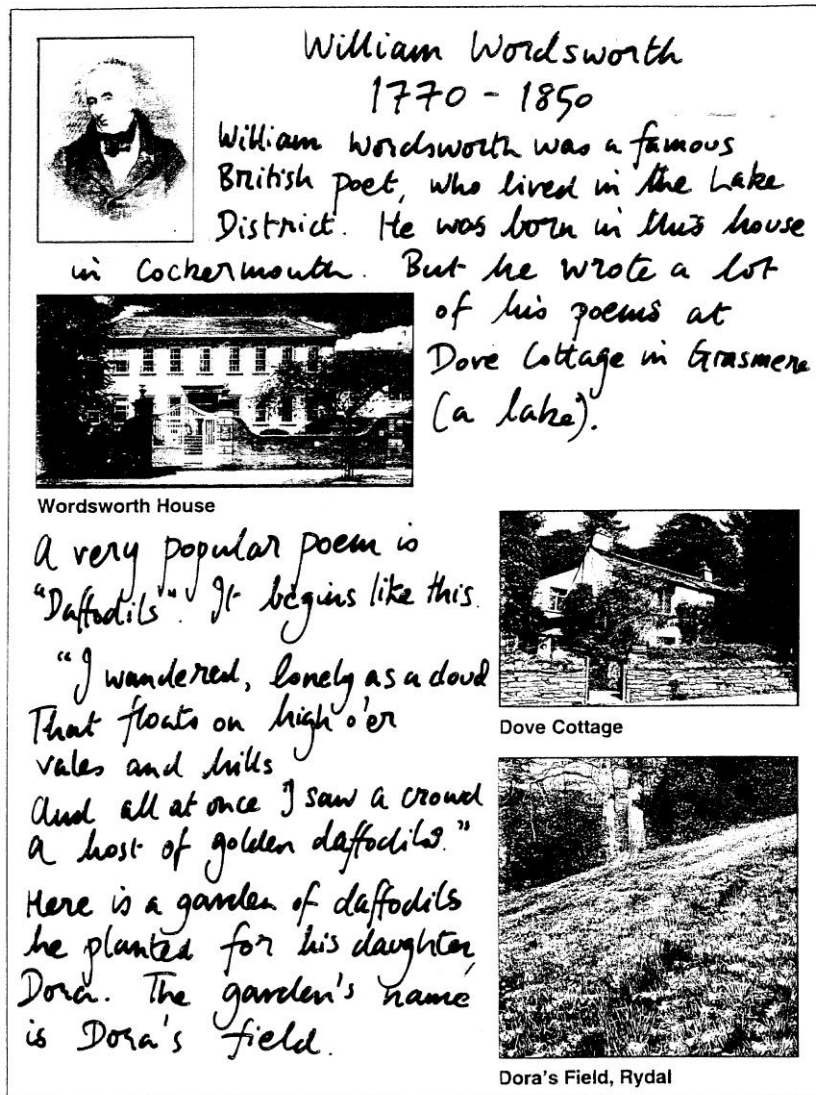 William Wordsworth
1770 - 1850
William Wordsworth was a famous
British poet, who lived in the Lake
District. He was born in this house
in Cockermouth. But he wrote a lot
of his poems at
Dove Cottage in Grasmere
(a lake).
Wordsworth House
A very popular poem is
"Daffodils". It begins like this.
"I wandered, lonely as a cloud
That floats on high o'er
vales and hills
And all at once I saw a crowd
A host of golden daffodils."
Here is a garden of daffodils
he planted for his daughter,
Dora. The garden's name
is Dora's field.
Dove Cottage
Dora's Field, Rydal